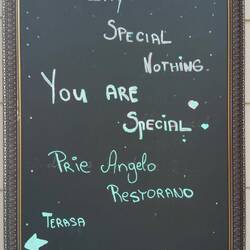 Special
Nothing.
You are
Special
Prie Angelo
Restorano
Terasa